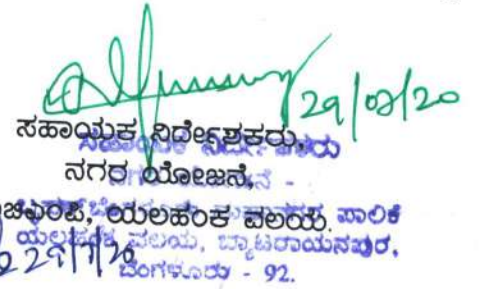 29/07/20
ಸಹಾಯಕ ನಿರ್ದೇಶಕರು,
ನಗರ ಯೋಜನೆ,
ಯಲಹಂಕ ವಲಯ.
ಪಾಲಿಕೆ
ಯಲಹಂಕ ವಲಯ, ಬ್ಯಾಟರಾಯನಪುರ,
29/7/20
ಬೆಂಗಳೂರು - 92.